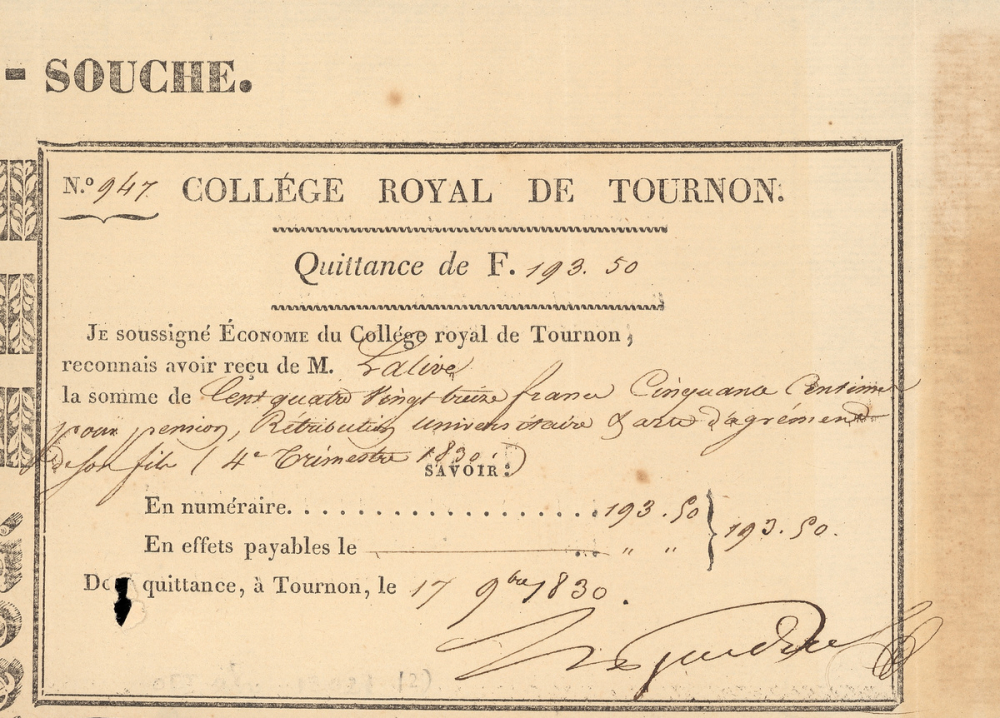 - SOUCHE.
N.º 947 COLLÉGE ROYAL DE TOURNON.
Quittance de F. 193. 50
JE soussigné ÉCONOME du Collége royal de Tournon,
reconnais avoir reçu de M. Lalive
la somme de Cent quatre Vingt treize francs Cinquante Centimes
pour pension, Rétribution Universitaire & arts d'agrément
de son fils (4e Trimestre 1830.)
SAVOIR :
En numéraire. . . . . . . . . . . . . . . . . . . . 193. 50 } 193. 50.
En effets payables le ... " "
quittance, à Tournon, le 17 9bre 1830.
(2)